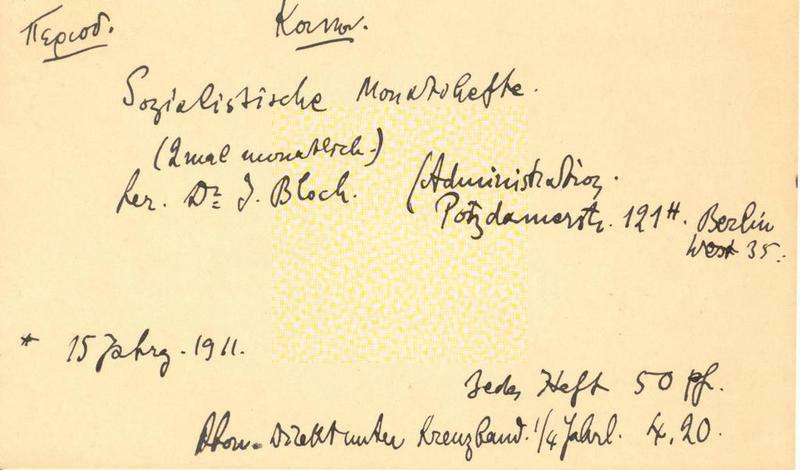 Период. Коми.
Sozialistische Monatshefte.
(2mal monatlich.)
her. Dr J. Bloch. (Administration.
Potzdamerstr. 121H. Berlin
West 35.
* 15 Jahrg. 1911.
Jedes Heft 50 pf.
Abon. Direkt unter Kreuzband. 1/4 Jährl. 4.20.